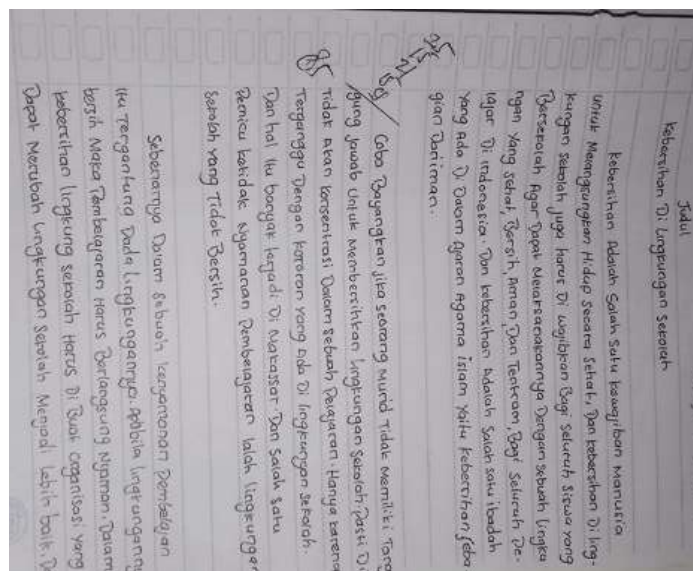 Judul
Kebersihan Di Lingkungan Sekolah
Kebersihan Adalah Salah Satu Kewajiban Manusia
Untuk Melangsungkan Hidup secara Sehat, Dan Kebersihan Di Ling-
kungan Sekolah Juga Harus Di Wajibkan Bagi Seluruh Siswa Yang
Bersekolah Agar Dapat Melaksanakannya Dengan Sebuah Lingku
ngan Yang Sehat, Bersih, Aman, Dan Tentram, Bagi Seluruh Pe-
lajar Di Indonesia. Dan Kebersihan Adalah Salah satu ibadah
Yang Ada Di Dalam Ajaran Agama Islam Yaitu Kebersihan Seba
gian Dari iman.
Coba Bayangkan Jika seorang Murid Tidak Memiliki Tang
gung Jawab Untuk Membersihkan Lingkungan Sekolah Pasti Di
Tidak Akan Konsentrasi Dalam sebuah Pelajaran. Hanya karena
Terganggu Dengan Kotoran Yang Ada Di lingkungan sekolah.
Dan hal Itu banyak Terjadi Di Makassar Dan Salah Satu
Pemicu Ketidak Nyamanan Pembelajaran Ialah lingkungan
Sekolah Yang Tidak Bersih.
Sebenarnya Dalam Sebuah kenyamanan Pembelajan
Itu Tergantung Pada Lingkungannya, Apabila lingkungann
bersih Maka Pembelajaran Harus Berlangsung Nyaman. Dalam
Kebersihan lingkung sekolah Harus Di Buat Organisasi Yang
Dapat Merubah Lingkungan Sekolah Menjadi Lebih baik. D
25
15
21
85